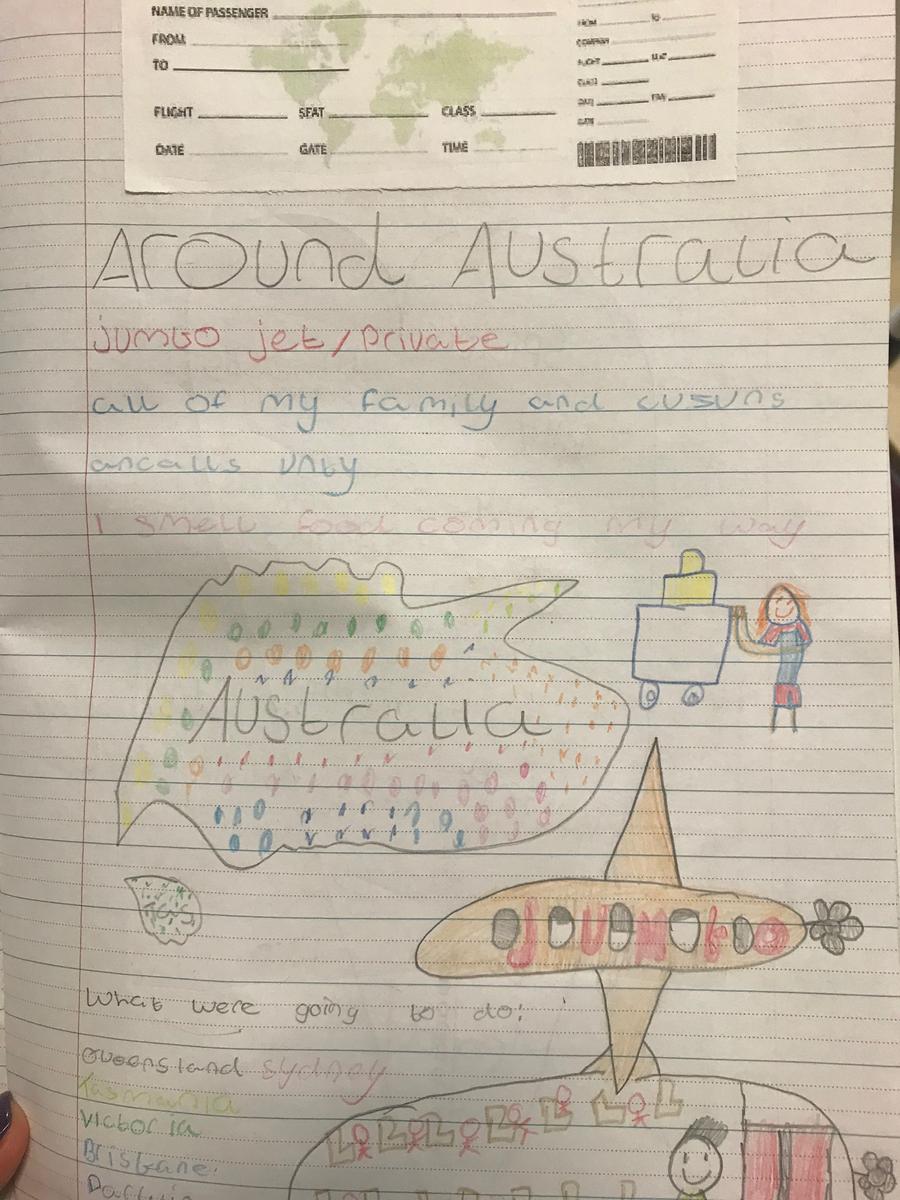 NAME OF PASSENGER
FROM
TO
FLIGHT SEAT CLASS
DATE GATE TIME
FROM TO
Around Australia
jumbo jet/private
all of my family and cusuns
ancalls unty
I smell food coming my way
Australia
Jumbo
What were going to do:
Queensland Sydney
Tasmania
Victoria
Brisbane